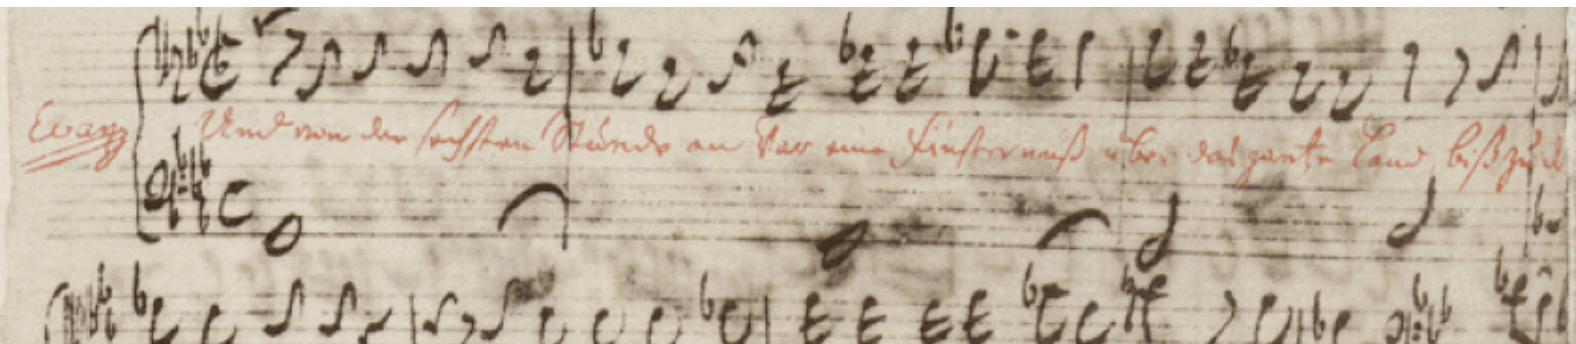 Evang Und von der sechsten Stunde an war eine Finsterniß über das gantze Land biß zu d